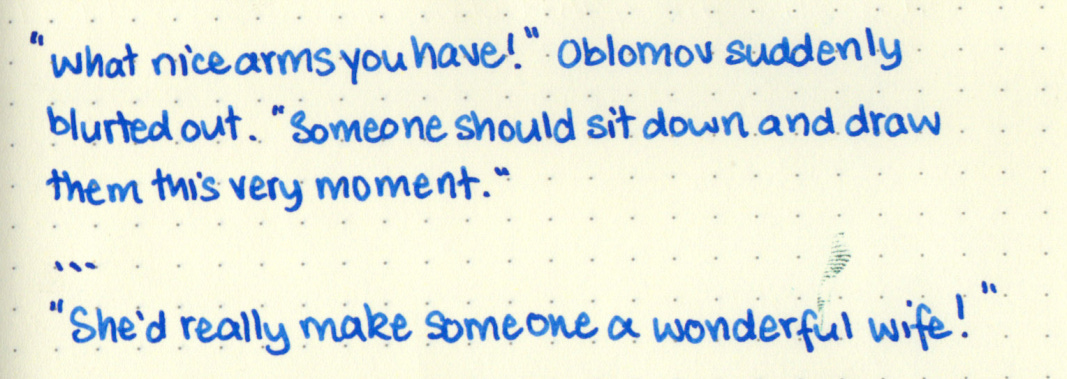 "What nice arms you have!" Oblomov suddenly
blurted out. "Someone should sit down and draw
them this very moment."
...
"She'd really make someone a wonderful wife!"